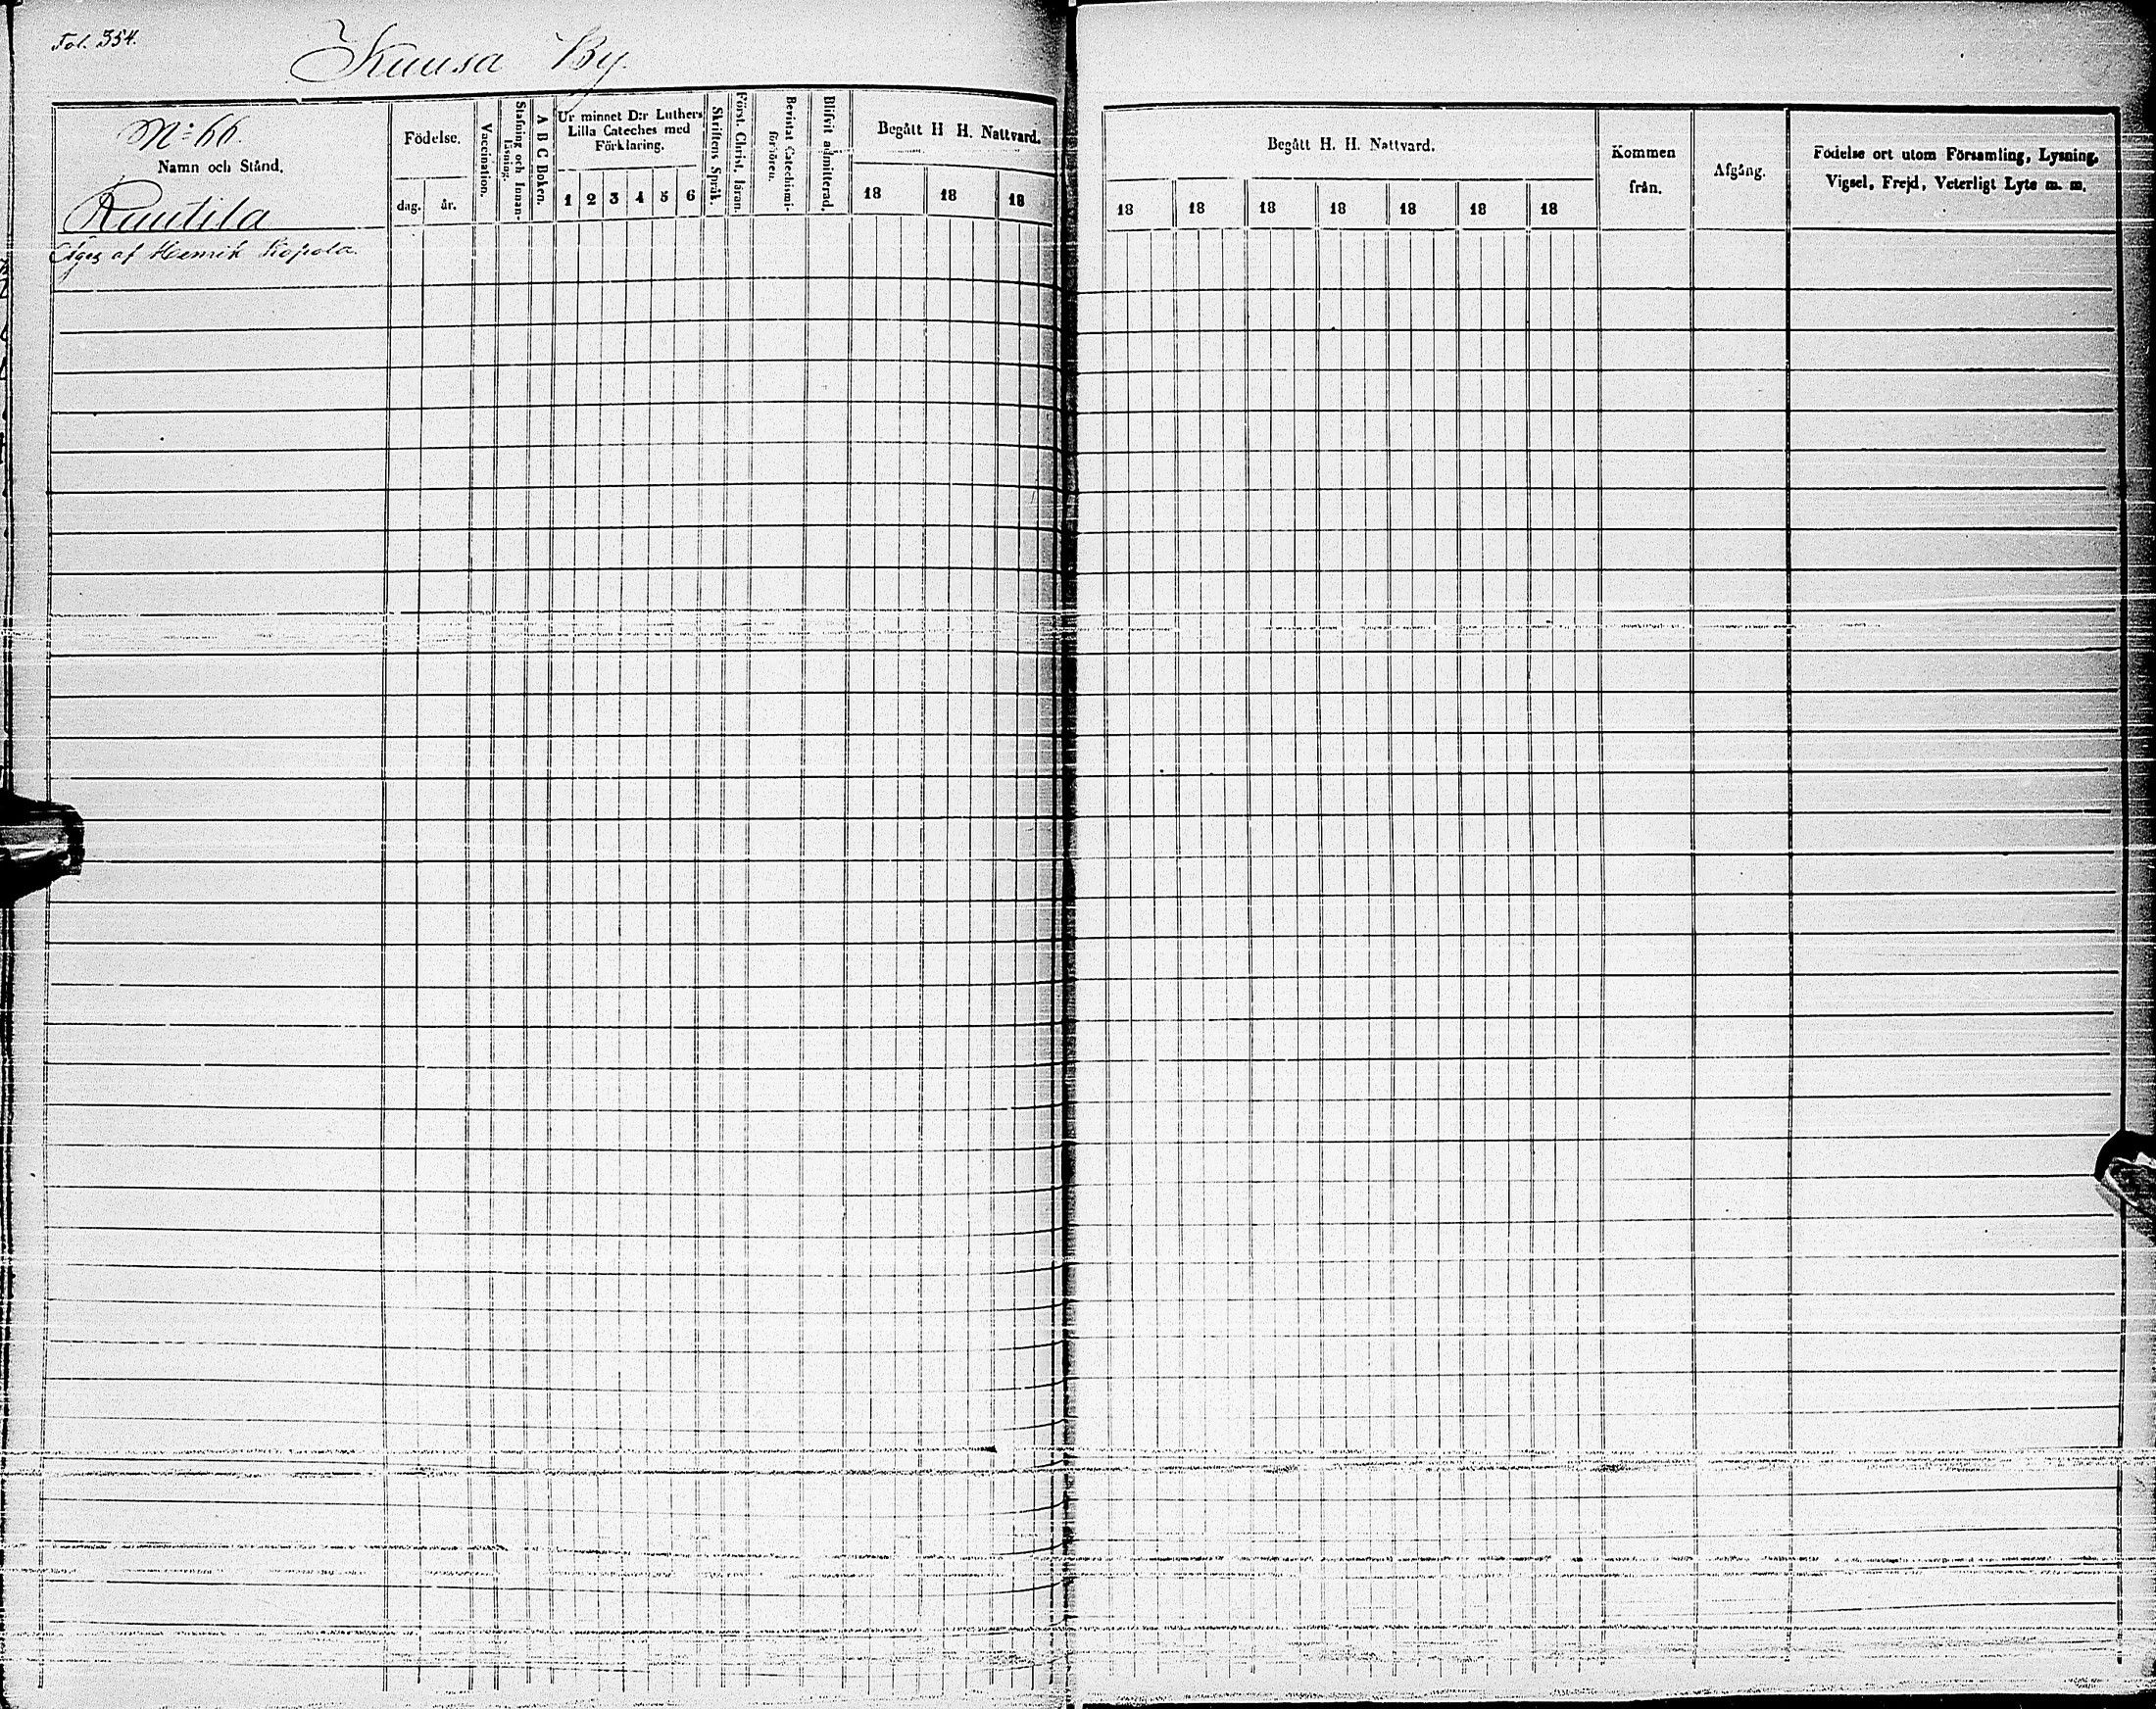 Fol. 354.
Kuusa By.
N:o 66.
Namn och Stånd.
Ruutila
Äges af Henrik Kopola.
Födelse.
dag.
år.
Vaccination.
Stafning och Innan-
läsning.
A B C Boken.
Ur minnet D:r Luthers
Lilla Cateches med
Förklaring.
1 2 3 4 5 6
Skriftens Språk.
Först. Christ. läran.
Bevistat Catechismi-
förhören.
Blifvit admitterad.
Begått H H. Nattvard.
18 18 18
Begått H. H. Nattvard.
18 18 18 18 18 18 18
Kommen
från.
Afgång.
Födelse ort utom Församling, Lysning,
Vigsel, Frejd, Veterligt Lyte m. m.